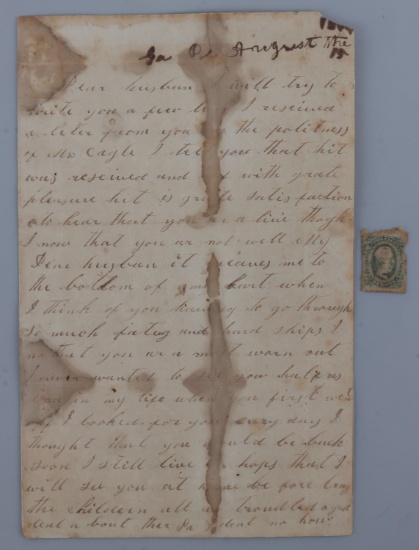 Ga August the
15
Dear husban I will try to
write you a few I reseived
a leter from you the politness
of Mr Cagle I tel you that hit
was reseived and with grate
pleasure hit is grate satisfaction
to hear that you ar a live though
I now that you ar not well My
Dear husban it greaves me to
the bottom of my hart when
I think of you having to go through
so much fateug and hard ships I
no that you ar a most worn out
I never wanted to see you half as
bad in my life when you first
off I looked for you every day I
thought that you would be back
soon I still live in hops that I
will see you at home be fore long
the children all ar troubled a good
deal a bout ther Pa I dont no how